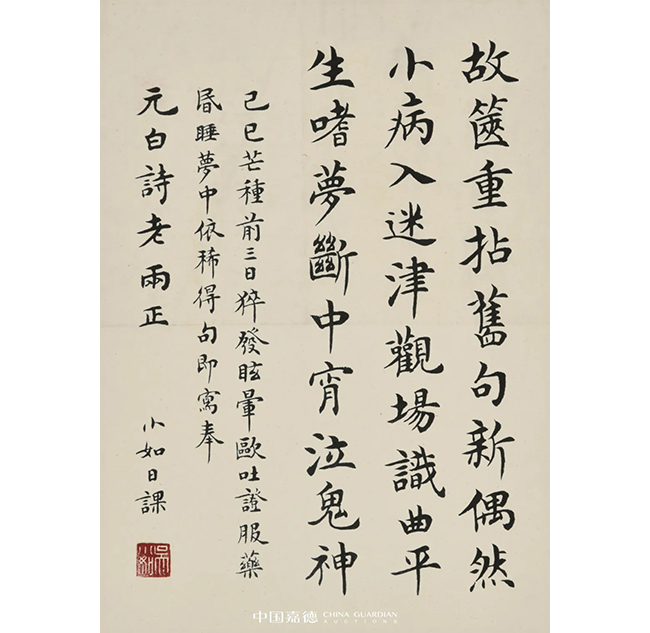 故篋重拈舊句新偶然
小病入迷津觀場識曲平
生嗜夢斷中宵泣鬼神
己巳芒種前三日猝發眩暈歐吐證服藥
昬睡夢中依稀得句即寫奉
元白詩老兩正
小如日課
吳小如
中国嘉德 CHINA GUARDIAN AUCTIONS